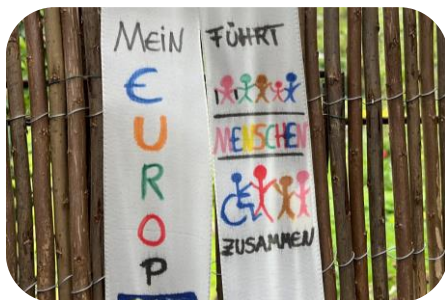 MEiN
€
U
R
O
P
FÜHRT
MENSCHEN
ZUSAMMEN